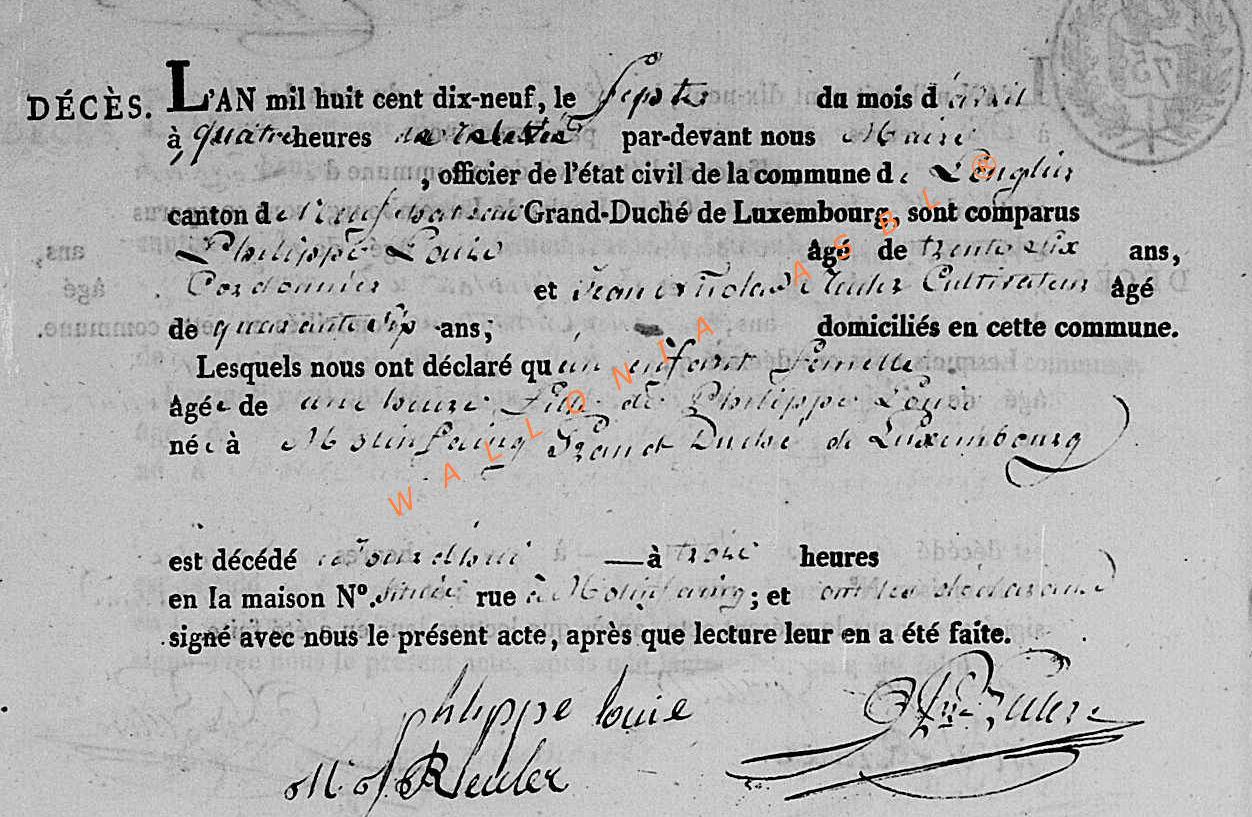 DÉCÈS. L'AN mil huit cent dix-neuf, le sept du mois d'avril
à quatre heures par-devant nous Maire
, officier de l'état civil de la commune de Longlier
canton de Neufchateau Grand-Duché de Luxembourg, sont comparus
Philippe Louis âgé de trente ans,
Cordonnier et Cultivateur âgé
de quarante ans; domiciliés en cette commune.
Lesquels nous ont déclaré qu'un enfant femelle
âgée de une heure fille de Philippe Louis
née à Molinfaing Grand Duché de Luxembourg
est décédé aujourdhui à trois heures
en la maison No. située rue à Molinfaing; et ont les déclarans
signé avec nous le présent acte, après que lecture leur en a été faite.
phlippe louie
Reuler
WALLONIA ASBL ®
75